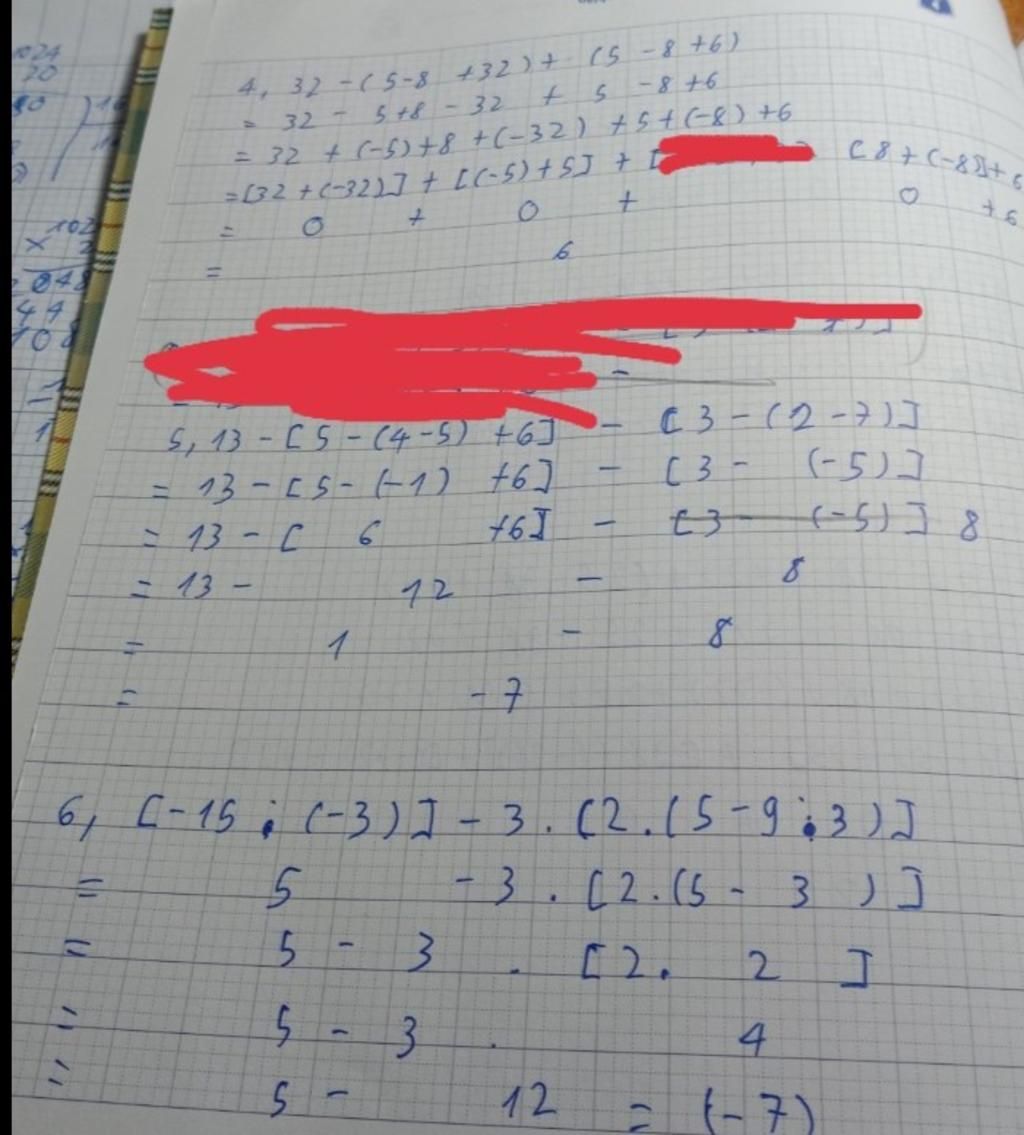 1024
20
4, 32 - (5-8 +32) + (5 -8 +6)
= 32 - 5+8 - 32 + 5 -8 +6
= 32 + (-5)+8 +(-32) +5+(-8) +6
=[32 +(-32)] + [(-5)+5] + [ [8+(-8)]+6
= 0 + 0 + 0 +6
= 6
102
x 2
5, 13 - [5 - (4-5) +6] - [3 - (2 -7)]
= 13 - [5 - (-1) +6] - [3 - (-5)]
= 13 - [ 6 +6] - [3 - (-5)] 8
= 13 - 12 - 8
= 1 - 8
= -7
6, [-15 : (-3)] - 3 . [2.(5-9:3)]
= 5 -3 . [2.(5 - 3 )]
= 5 - 3 . [2. 2 ]
= 5 - 3 . 4
= 5 - 12 = (-7)